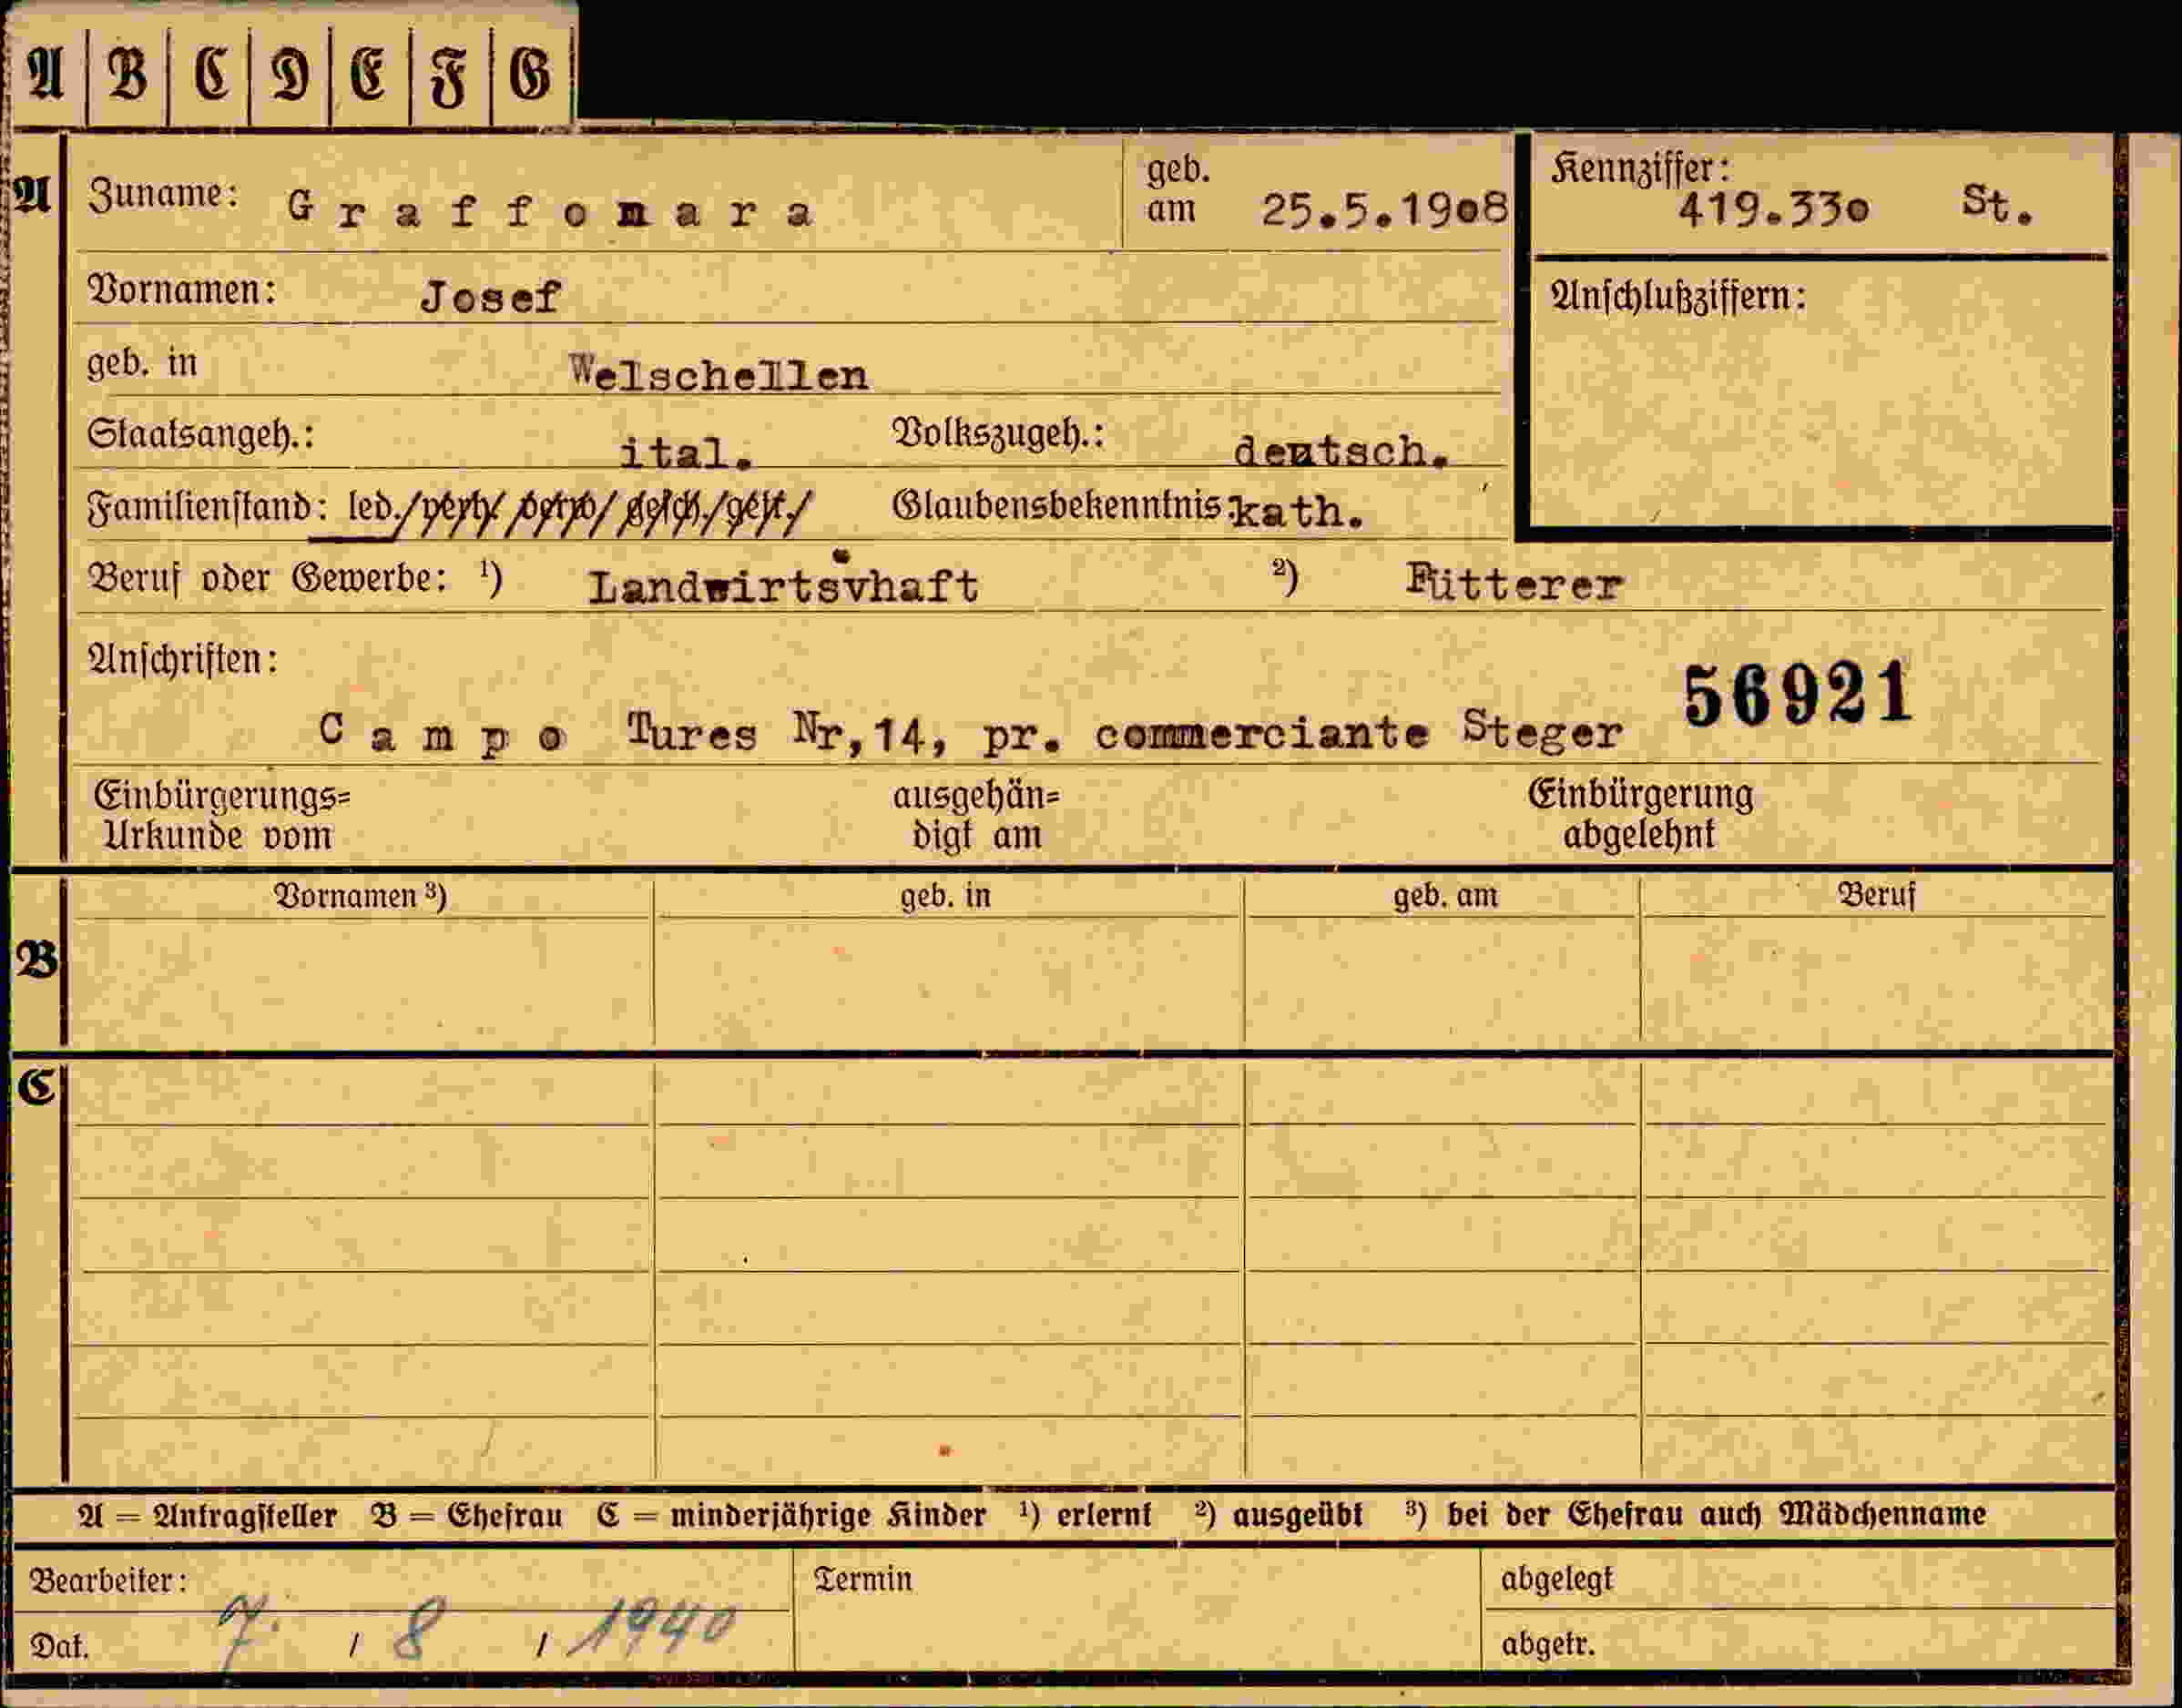 A B C D E F G
A Zuname: Graffonara geb. am 25.5.1908 Kennziffer: 419.330 St.
Vornamen: Josef Anschlußziffern:
geb. in Welschellen
Staatsangeh.: ital. Volkszugeh.: deutsch.
Familienstand: led./verh./verw./gesch./getr./ Glaubensbekenntnis: kath.
Beruf oder Gewerbe: ¹) Landwirtsvhaft ²) Fütterer
Anschriften: 56921
Campo Tures Nr,14, pr. commerciante Steger
Einbürgerungs= ausgehän= Einbürgerung
Urkunde vom digt am abgelehnt
Vornamen ³) geb. in geb. am Beruf
B
C
A = Antragsteller B = Ehefrau C = minderjährige Kinder ¹) erlernt ²) ausgeübt ³) bei der Ehefrau auch Mädchenname
Bearbeiter: Termin abgelegt
Dat. 7. / 8 / 1940 abgetr.